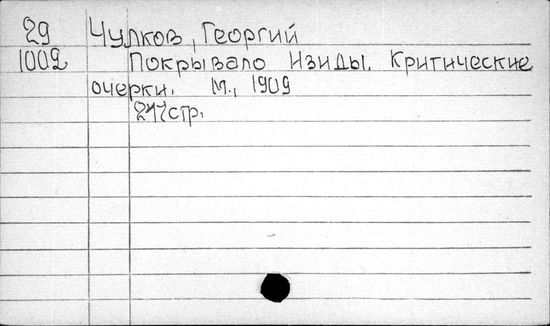 29 Чулков, Георгий
1002 Покрывало Изиды. Критические
очерки. М., 1909
217стр.